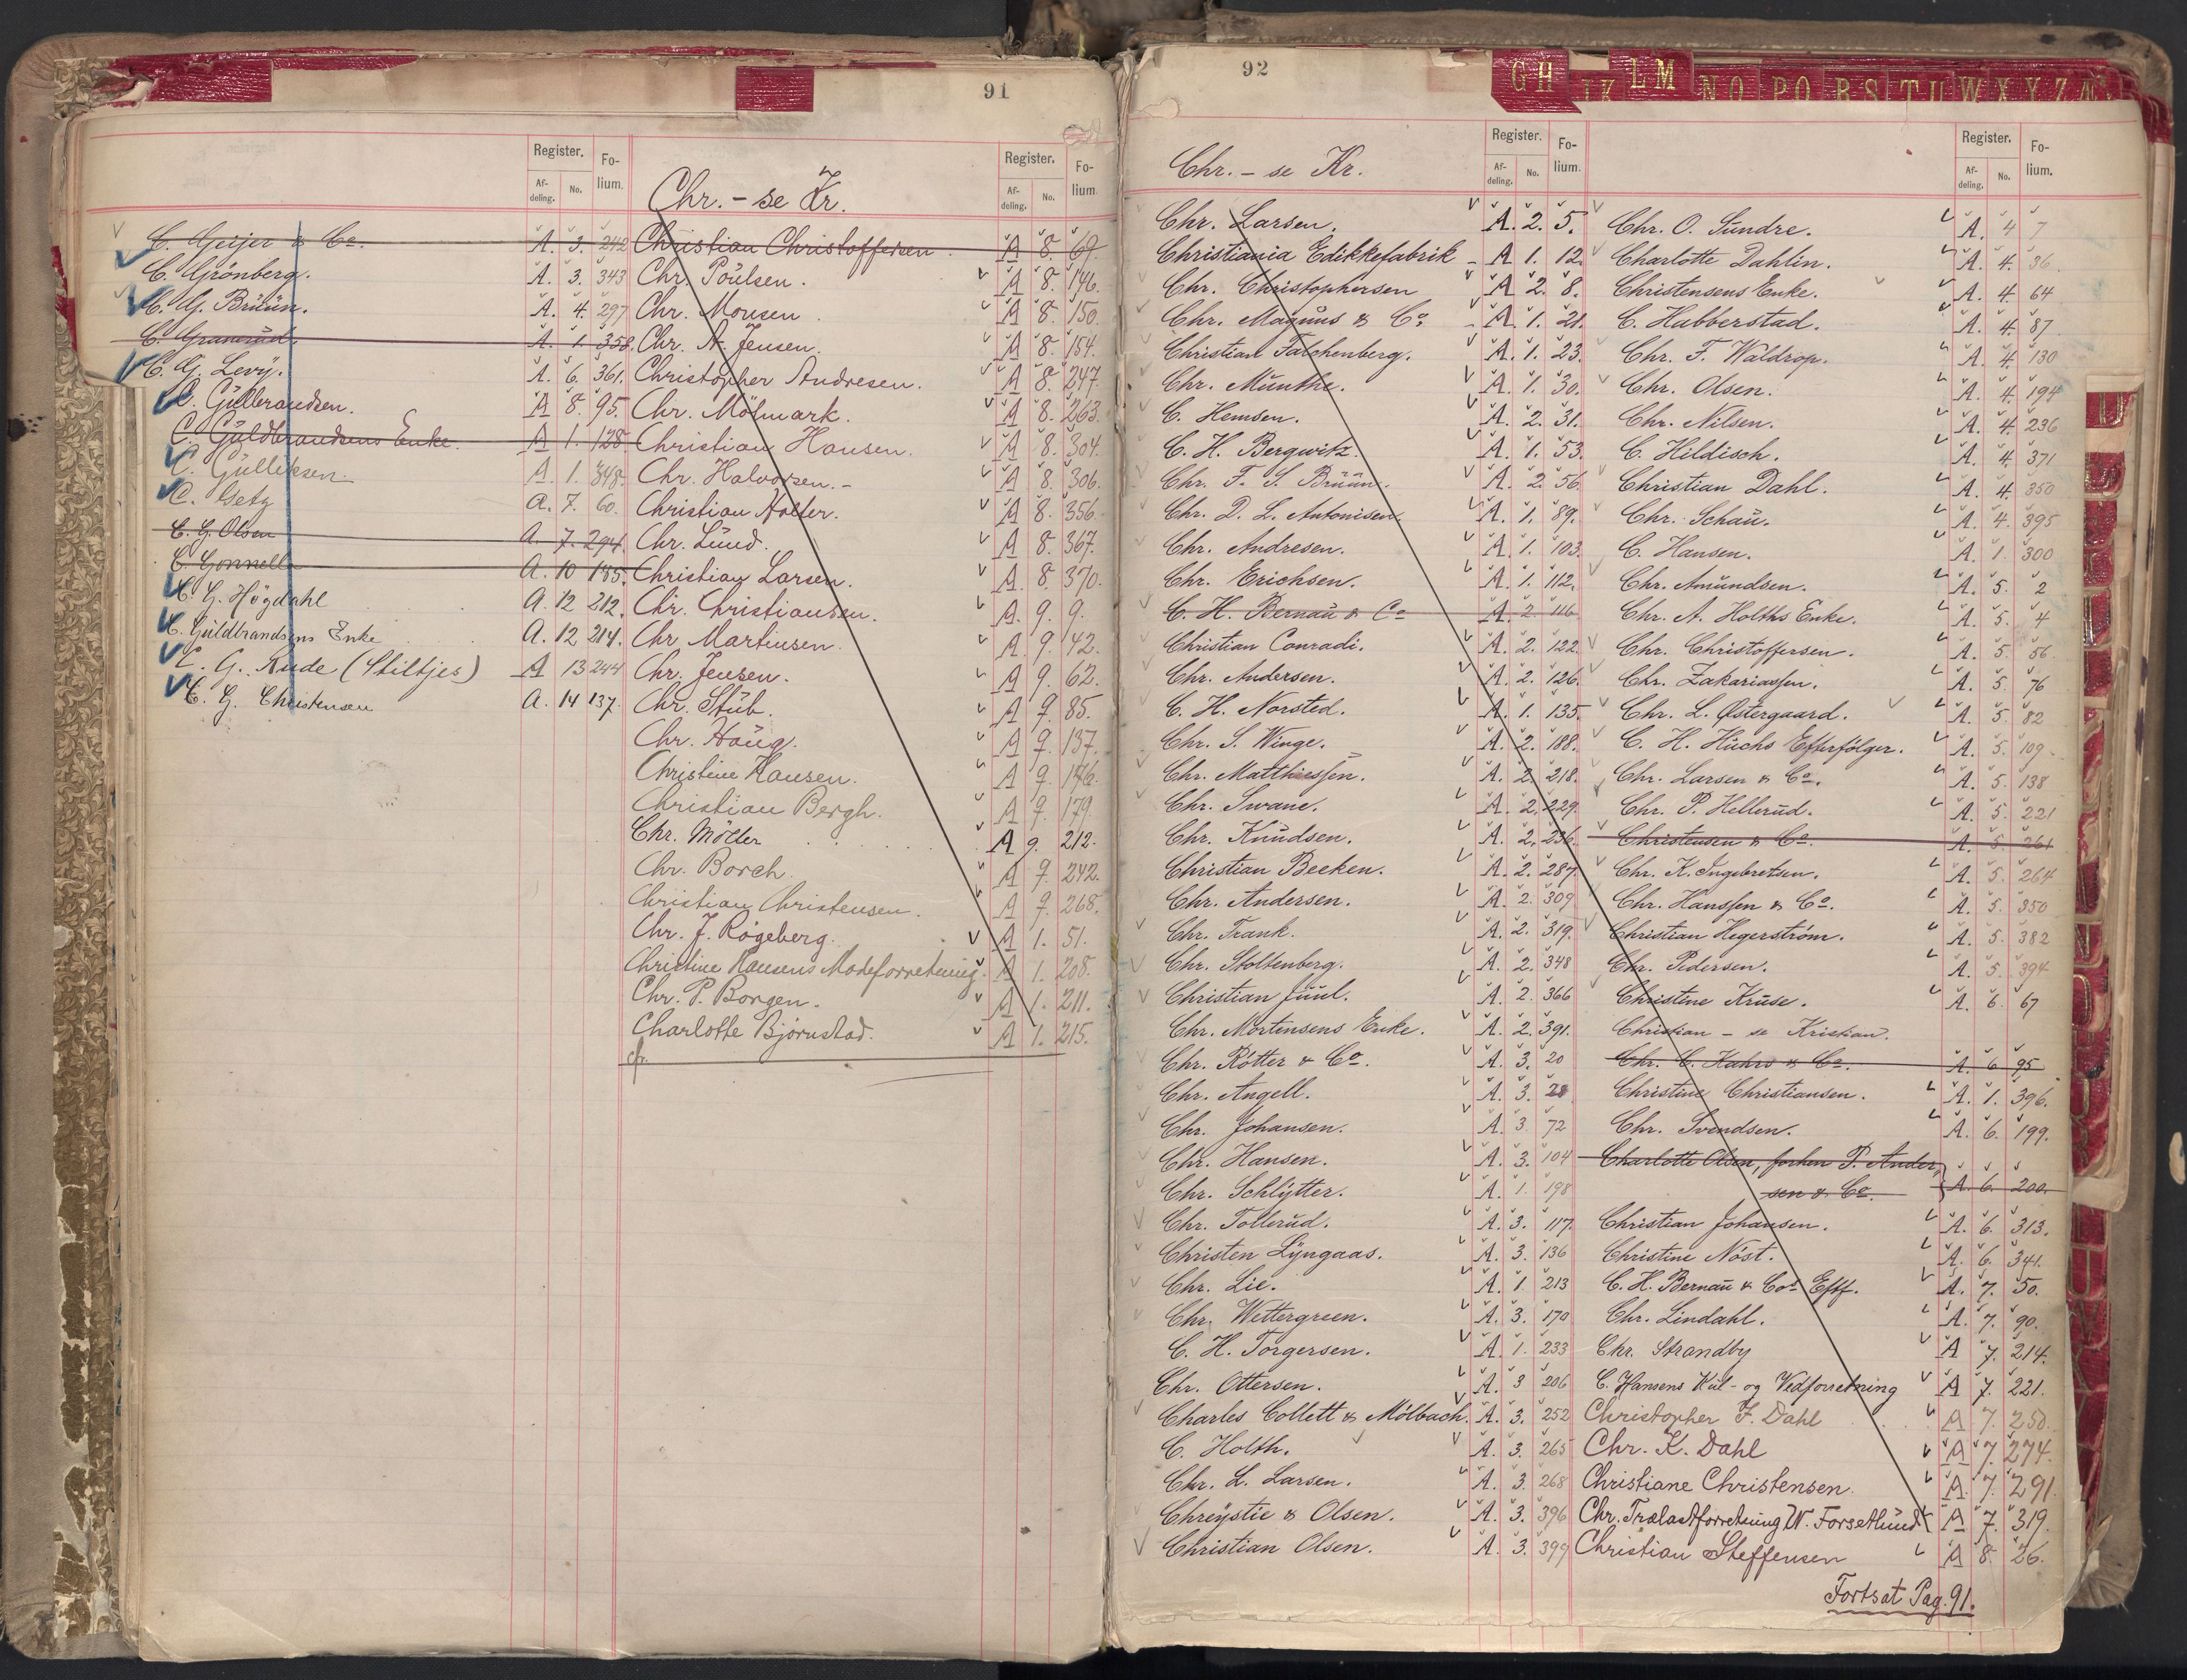 91
Register. Folium.
Afdeling. No.
C. Geijer & Co. A. 3. 242
C. Grönberg. A. 3. 343
C. G. Brüün. A. 4. 297
C. Granerüd. A. 1. 358.
C. G. Levÿ. A. 6. 361.
C. Gülbrandsen. A 8. 95.
C. Güldbrandsens Enke. A 1. 128
C. Gülliksen. A. 1. 348.
C. Getz A. 7. 60.
C. G. Olsen A. 7. 294
C. Gonnella A. 10 185.
C. G. Högdahl A. 12 212.
C. Güldbrandsens Enke A. 12 214.
C. G. Rude (Stiltjes) A 13 244
C. G. Christensen A. 14 137.
Chr. - se Kr.
Register. Folium.
Afdeling. No.
Christian Christoffersen. A 8. 69.
Chr. Poülsen. A 8. 146.
Chr. Monsen. A 8. 150.
Chr. A. Jensen. A 8. 154.
Christopher Andresen. A 8. 247.
Chr. Mölmark. A 8. 263.
Christian Hansen. A 8. 304.
Chr. Halvorsen. - A 8. 306.
Christian Holter. A 8. 356.
Chr. Lünd. A 8. 367.
Christian Larsen. A. 8. 370.
Chr. Christiansen. A. 9. 9.
Chr. Martinsen. A. 9. 42.
Chr. Jensen. A 9. 62.
Chr. Stüb. A 9. 85.
Chr. Haüg. A 9. 137.
Christine Hansen. A 9. 146.
Christian Bergh. A 9. 179.
Chr. Möller A 9. 212.
Chr. Borch. A 9. 242.
Christian Christensen. A 9. 268.
Chr. J. Rögeberg. A 1. 51.
Christine Hansens Modeforretning. A 1. 208.
Chr. P. Borgen. A 1. 211.
Charlotte Björnstad. A 1. 215.
cfr.
92
G H J K L M N O P Q R S T U W X Y Z Æ
Chr. - se Kr.
Register. Folium.
Afdeling. No.
Chr. Larsen. A. 2. 5.
Christiania Edikkefabrik A 1. 12.
Chr. Christophersen A 2. 8.
Chr. Magnüs & Co. A. 1. 21.
Christian Falchenberg. A. 1. 23.
Chr. Münthe. A. 1. 30.
C. Hemsen. A. 2. 31.
C. H. Bergwitz. A. 1. 53.
Chr. F. S. Brüün. A. 2. 56.
Chr. D. L. Antonisen. A. 1. 89.
Chr. Andresen. A. 1. 103.
Chr. Erichsen. A. 1. 112.
C. H. Bernaü & Co A. 2. 116
Christian Conradi. A. 2. 122.
Chr. Andersen. A. 2. 126.
C. H. Norsted. A. 1. 135.
Chr. S. Winge. A. 2. 188.
Chr. Matthiessen. A. 2. 218.
Chr. Swane. A. 2. 229.
Chr. Knüdsen. A. 2. 236.
Christian Becken. A. 2. 287.
Chr. Andersen. A. 2. 309.
Chr. Frank. A. 2. 319.
Chr. Stoltenberg. A. 2. 348
Christian Jüül. A. 2. 366
Chr. Mortensens Enke. A. 2. 391.
Chr. Rötter & Co. A. 3. 20
Chr. Angell. A. 3. 28
Chr. Johansen. A. 3. 72
Chr. Hansen. A. 3. 104
Chr. Schlÿtter. A. 1. 198
Chr. Tollerüd. A. 3. 117.
Christen Lÿngaas. A. 3. 136
Chr. Lie. A. 1. 213
Chr. Wettergreen. A. 3. 170
C. H. Torgersen. A. 1. 233
Chr. Ottersen. A. 3 206
Charles Collett & Mölbach. A. 3. 252
C. Holth. A. 3. 265
Chr. L. Larsen. A. 3. 268
Chreÿstie & Olsen. A. 3. 396
Christian Olsen. A. 3. 399
Register. Folium.
Afdeling. No.
Chr. O. Sündre. A. 4 7
Charlotte Dahlin. A. 4. 36
Christensens Enke. A. 4. 64
C. Habberstad. A. 4. 87
Chr. F. Waldrop. A. 4. 130
Chr. Olsen. A. 4. 194
Chr. Nilsen. A. 4. 236
C. Hildisch. A. 4. 371
Christian Dahl. A. 4. 350
Chr. Schaü. A. 4. 395
C. Hansen. A. 1. 300
Chr. Amündsen. A. 5. 2
Chr. A. Holths Enke. A. 5. 4
Chr. Christoffersen. A. 5 56
Chr. Zakariassen. A. 5. 76
Chr. L. Østergaard. A. 5. 82
C. H. Hüchs Efterfölger. A. 5. 109
Chr. Larsen & Co. A. 5. 138
Chr. P. Hellerüd. A. 5. 221
Christensen & Co. A. 5. 261
Chr. K. Ingebretsen. A. 5. 264
Chr. Hanssen & Co. A. 5. 350
Christian Hegerström. A. 5. 382
Chr. Pedersen. A. 5. 394
Christine Krüse. A. 6. 67
Christian - se Kristian.
Chr. C. Kahrs & Co. A. 6 95
Christine Christiansen. A. 1. 396.
Chr. Svendsen. A. 6. 199.
Charlotte Olsen, forhen P. Ander
sen & Co. A. 6. 200.
Christian Johansen. A. 6. 313.
Christine Nöst. A. 6. 341.
C. H. Bernaü & Cos Eftf. A. 7. 50.
Chr. Lindahl. A. 7. 90.
Chr. Strandby A 7. 214.
C. Hansens Kül- og Vedforretning A 7. 221.
Christopher F. Dahl A 7. 250.
Chr. K. Dahl A 7. 274.
Christiane Christensen. A 7. 291.
Chr. Trælastforretning W. Forsetlünd A 7. 319.
Christian Steffensen A 8. 26.
Fortsat Pag. 91.